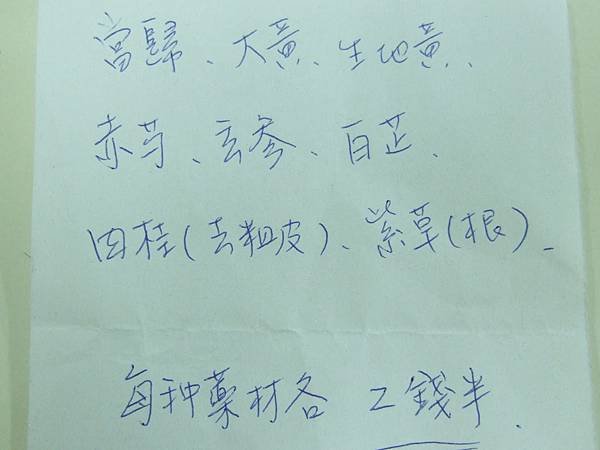 當歸、大黃、生地黃、
赤芍、玄參、白芷、
肉桂(去粗皮)、紫草(根)。
每种藥材各 2錢半.